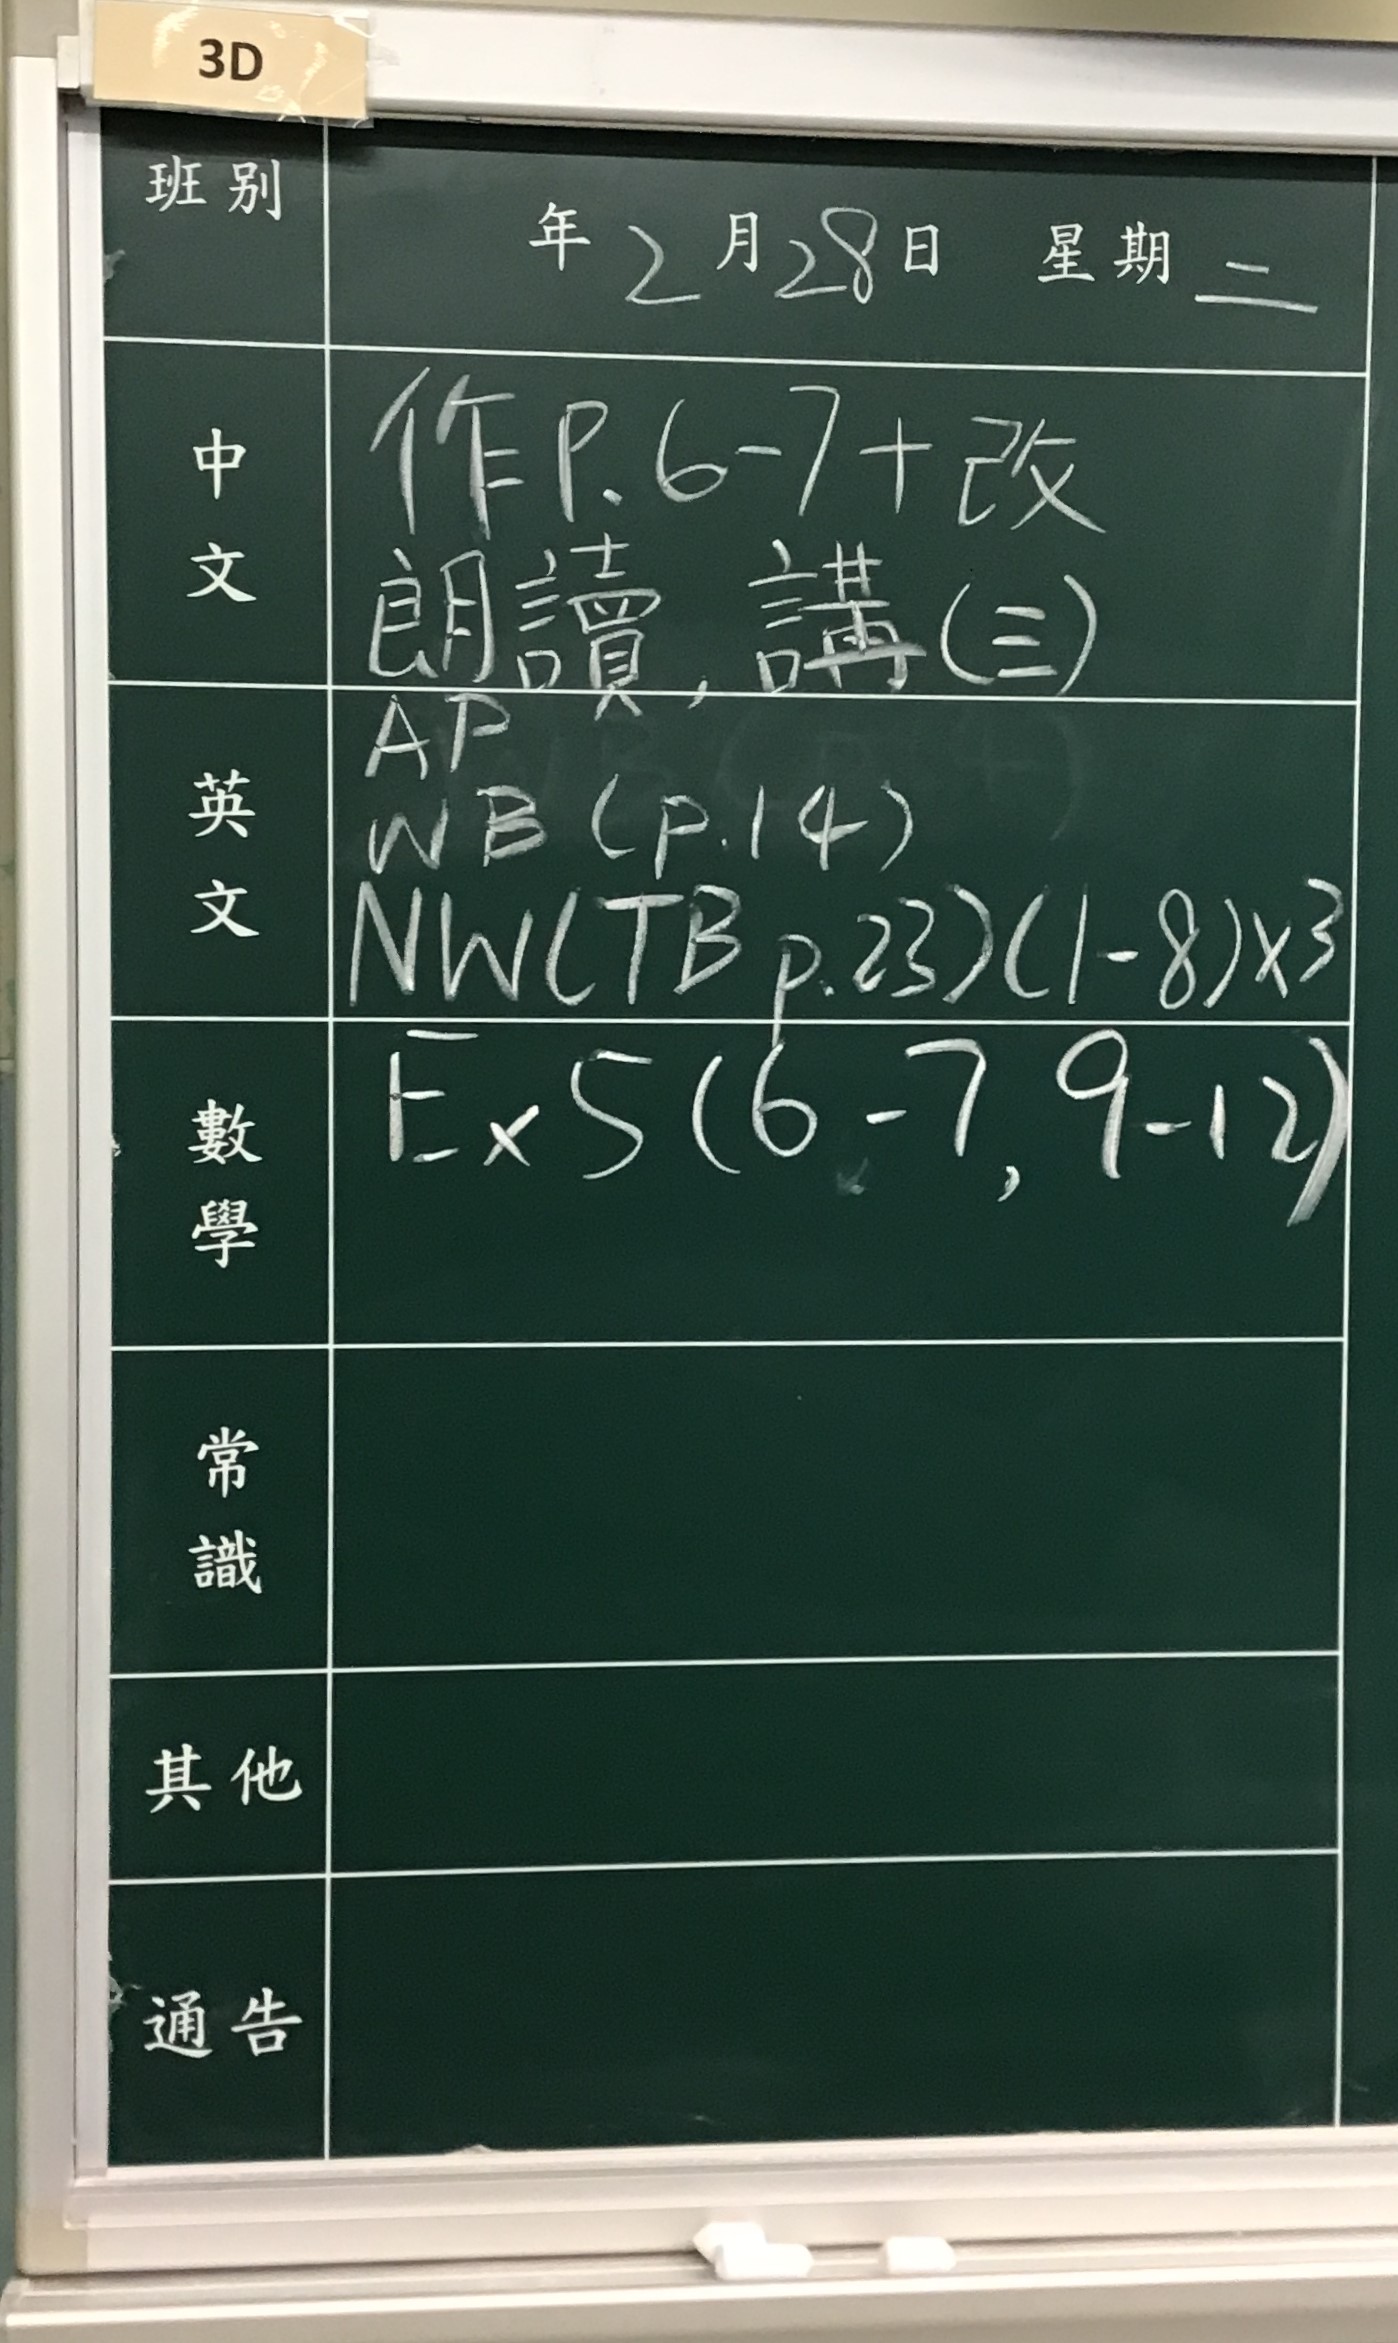 3D
班別
年 2 月 28 日 星期 二
中文
作P.6-7+改
朗讀,講(三)
英文
AP
WB (p.14)
NW(TB p.23)(1-8)x3
數學
Ex 5 (6-7, 9-12)
常識
其他
通告